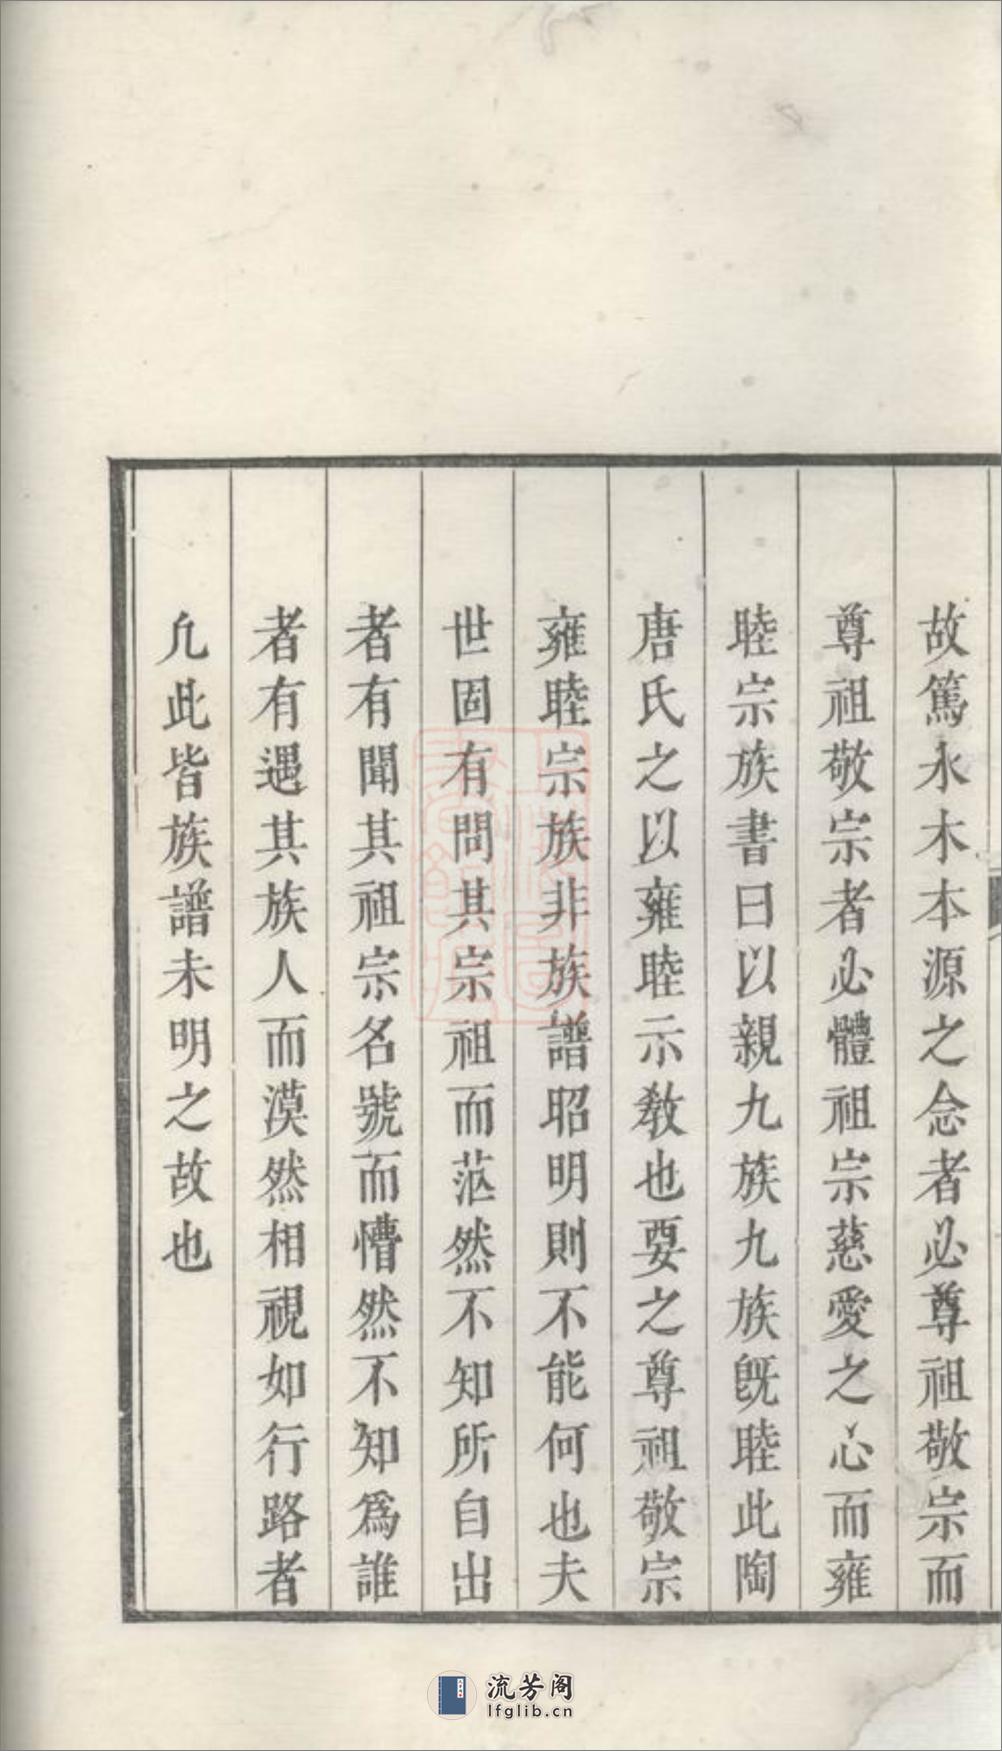 故篤水木本源之念者必尊祖敬宗而
尊祖敬宗者必體祖宗慈愛之心而雍
睦宗族書曰以親九族九族旣睦此陶
唐氏之以雍睦示敎也要之尊祖敬宗
雍睦宗族非族譜昭明則不能何也夫
世固有問其宗祖而茫然不知所自出
者有聞其祖宗名號而懵然不知爲誰
者有遇其族人而漠然相視如行路者
凢此皆族譜未明之故也
流芳阁
lfglib.cn